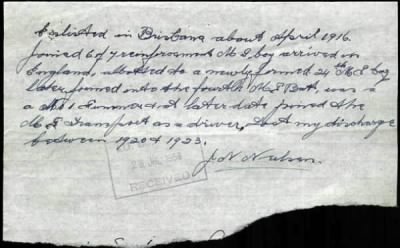 Enlisted in Brisbane about April 1916.
Joined 6 of 7 reinforsment M G Coy arrived in
England, alloted to a newly formed 24th M G Coy
later formed into the fourth M G Batt, was a
a No 1 Gunner at later date joined the
M G transport as a driver, lost my discharge
between 1920 & 1923.
J N Nielsen.
RECEIVED